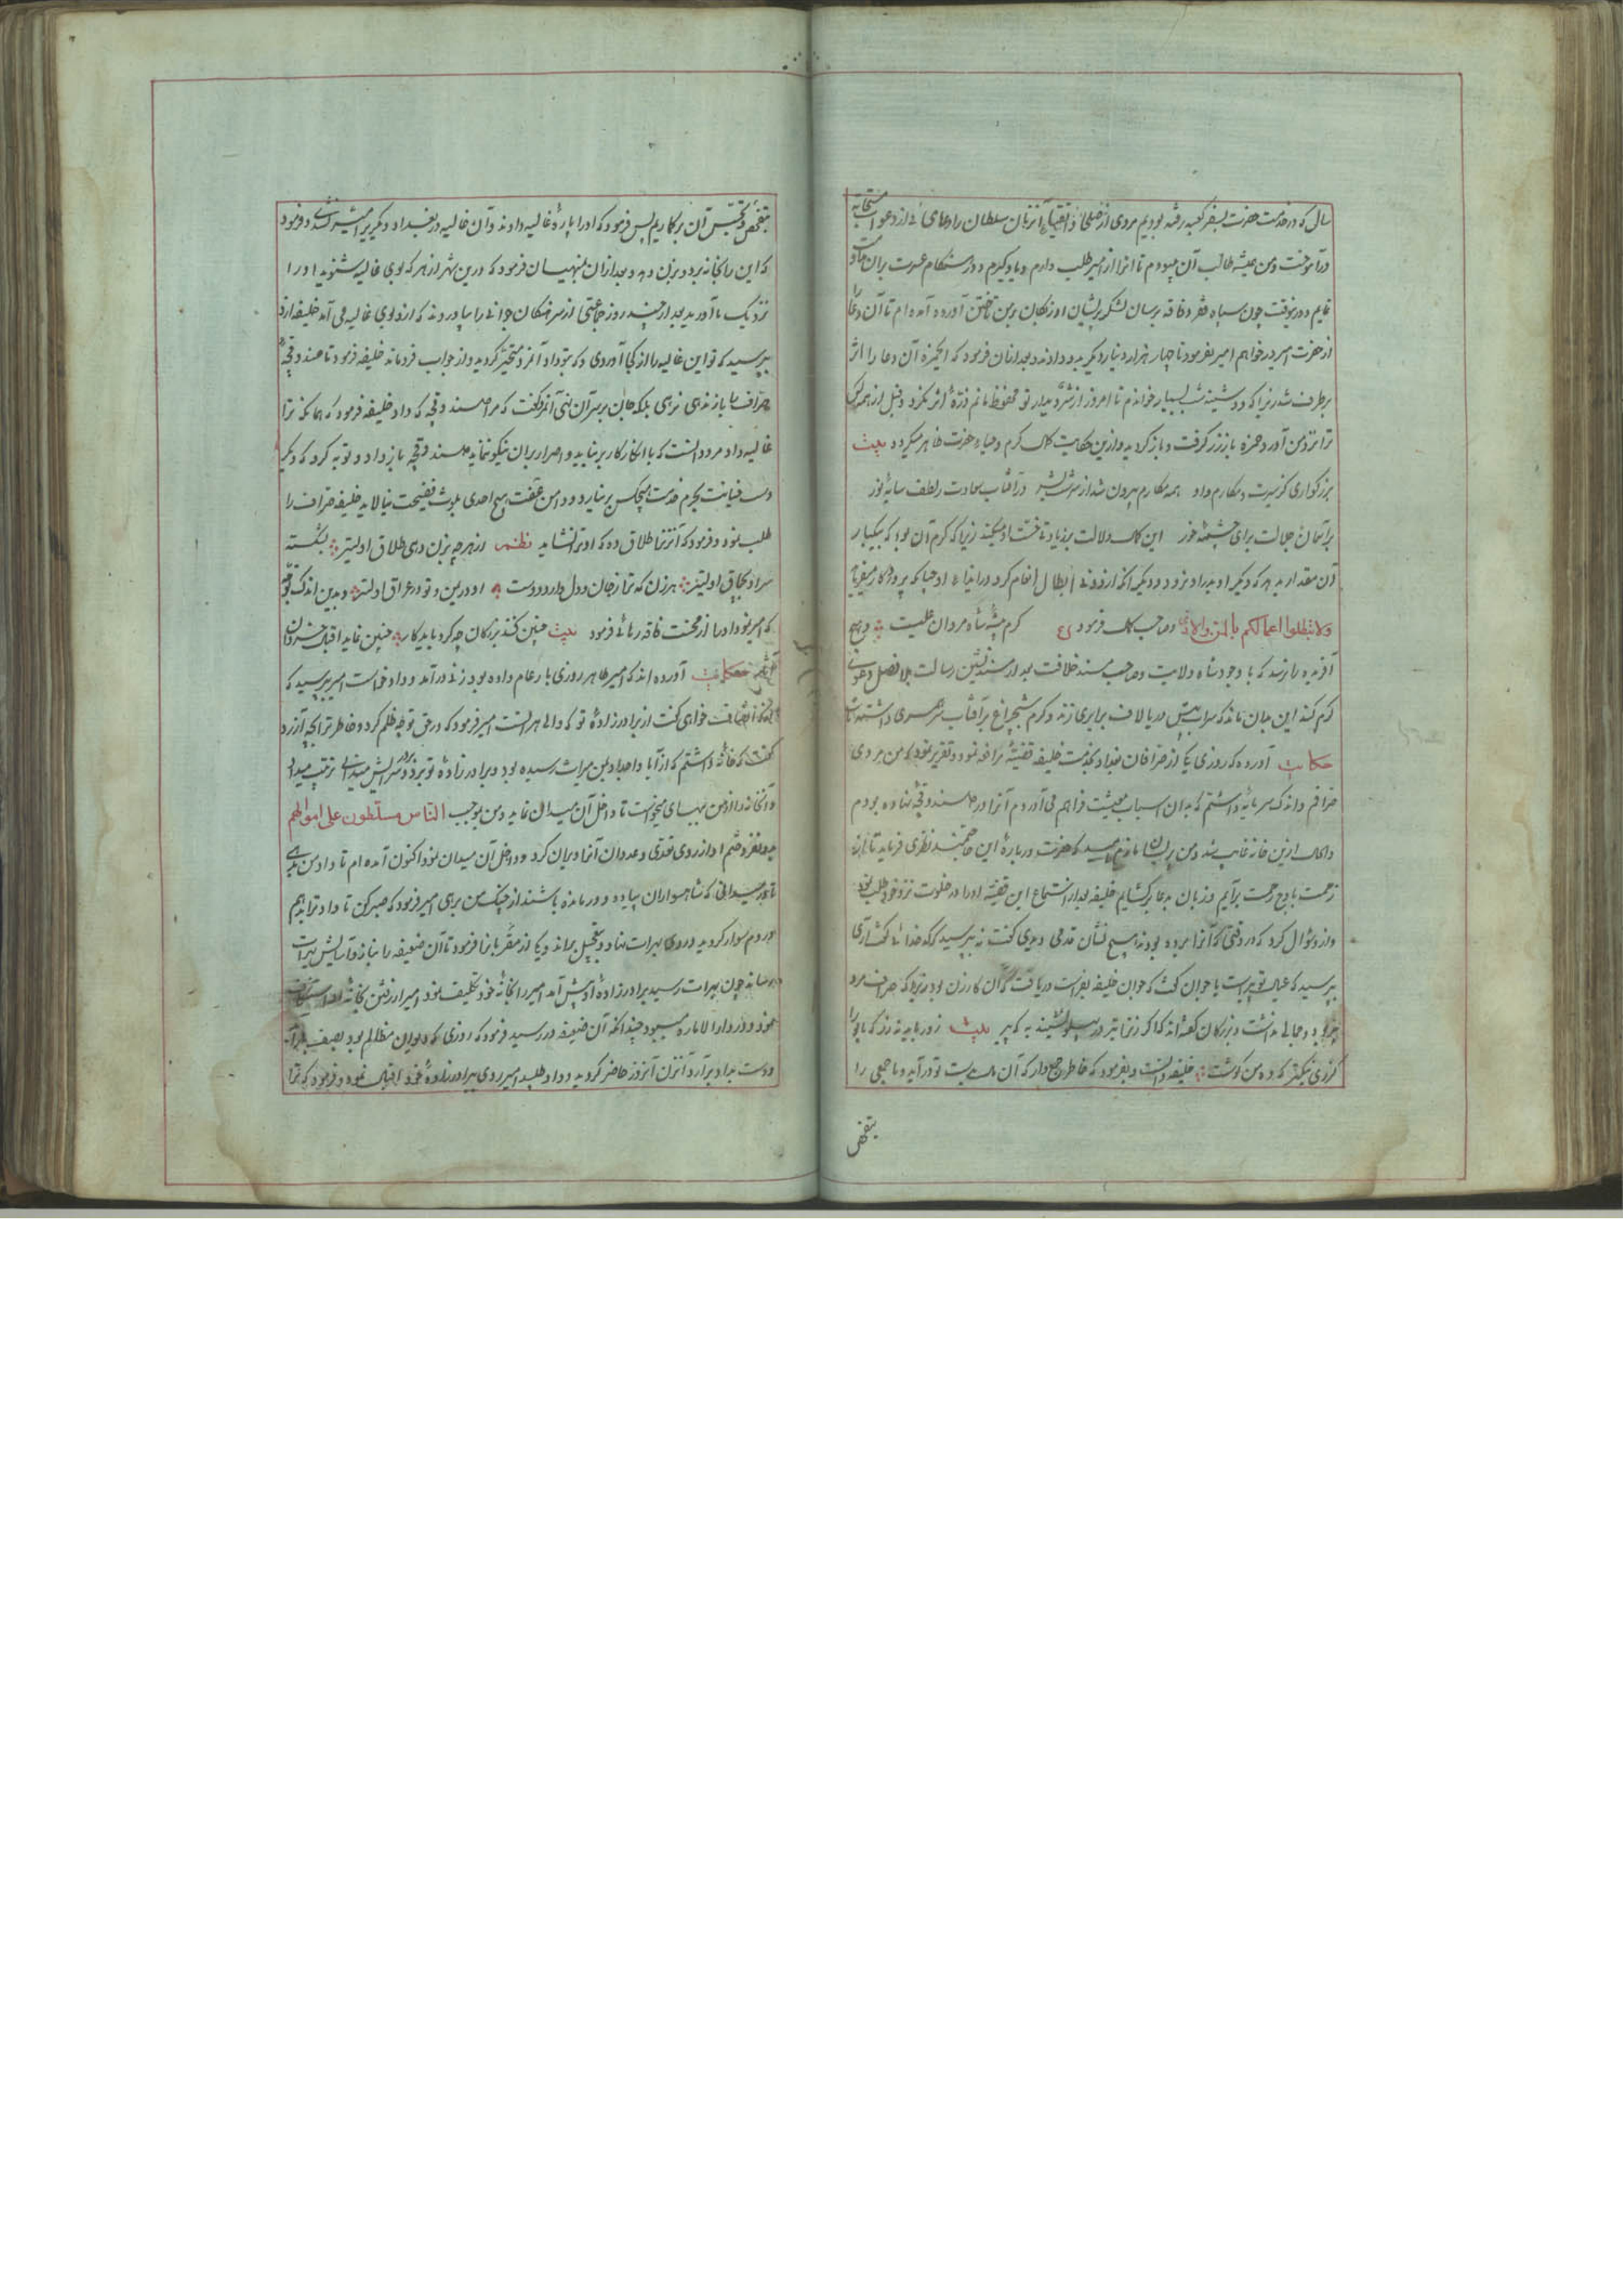 سال که در خدمت حضرت بسفر کعبه رفته بودیم مردی از صلحا و اتقیا آنزبان سلطان را دعای از دعوات مستجابه
درآموخت و من همیشه طالب آن میبودم تا انرا از امیر طلب دارم و یاد گیرم و در هنگام عسرت بران
نمایم و درینوقت چون سپاه فقر و فاقه برسان لشکر پریشان اوزبکان برمن تاختن آورده آمده ام تا آن دعا را
از حضرت امیر درخواهم امیر بفرمود تا چهار هزار دینار دیگر بدو دادند و بعد از آن فرمود که ایعزیز آن دعا را اثر
برطرف شد زیرا که دوشینه شب بسیار خواندم تا امروز از شر دیدار تو محفوظ مانم ذره اثر نکرد و قبل از همه کس
ترا نزد من آورد حمزه باز زر گرفت و باز گردید و ازین حکایت کمال کرم و حیاء حضرت ظاهر میگردد بیت
بزرگواری کز سیرت و مکارم داد همه مکارم بیرون شد از سرشت بشر در آفتاب سعادت ز لطف سایه نور
بر آسمان جلالت برای چشمه خور این کمال دلالت بر زیادتی سخاوت میکند زیرا که کرم آن بود که بیکبار
آن مقدار بد هر که دیگر او بدر او نرود و دیگر آنکه از روی ابطال انعام کرد در ایذاء او
ولا تبطلوا اعمالکم بالمن والاذی و صاحب کمال فرمود ع کرم پیشه شاه مردان علیست و هیچ
آفریده را نرسد که با وجود شاه ولایت و صاحب مسند خلافت بعد از مسند نشین رسالت بلا فصل دعوی
کرم کند این بدان ماند که سراب پیش دریا لاف برابری زند و کرم شبچراغ بر آفتاب
حکایت آورده که روزی یکی از صرافان بغداد بخدمت خلیفه قضیه مرافعه نمود و تقریر نمود که من مردی
صرافم و اندک سرمایه داشتم که بدان اسباب معیشت فراهم می آوردم آنرا در صندوقچه نهاده بودم
و الحال ازین خانه غایب شد و من پریشان ماندم امید که حضرت درباره این مستمند نظری فرماید تا از
زحمت باوج رحمت برآیم و زبان بدعا برگشایم خلیفه بعد از استماع این قضیه او را در خلوت نزد خود طلب نمود
و از و سؤال کرد که در وقتی که آنرا برده بودند هیچ نشان قدمی دیدی گفت نه بپرسید که کدخدائی گفت آری
بپرسید که عیال تو پیر است یا جوان گفت که جوان خلیفه بفراست دریافت که آن کار زن بود زیرا که صراف مرد
پیر بود و جمالی نداشت و بزرگان گفته اند که اگر زنرا تیر در پهلو نشیند به که پیر بیت زور باید نه زر که بانو را
گزری نیکتر که ده من گوشت خلیفه دانست و بفرمود که خاطر جمع دار که آن مال بدست تو در آید و ما جمعی را
بتفحص
بتفحص و تجسس آن برگماریم پس فرمود که او را پاره غالیه دادند و آن غالیه در بغداد دیگریرا میسر نشدی و فرمود
که این را بخانه برد و بزن دهد و بعد از آن بمنهیان فرمود که درین شهر از هر که بوی غالیه شنوید او را
نزدیک ما آورید بعد از چند روز جماعتی از سرهنگان جوانی را بیاوردند که از او بوی غالیه می آمد خلیفه از و
بپرسید که تو این غالیه را از کجا آوردی و که بتو داد آنمرد متحیر گردید و از جواب فرو ماند خلیفه فرمود تا صندوقچه
صراف را باز ندهی نرهی بلکه جان بر سر آن نهی آنمرد گفت که مرا صندوقچه که داد خلیفه فرمود که همانکه ترا
غالیه داد مرد دانست که با انکار کار برنیاید و اصرار بران نیکو ننماید صندوقچه باز داد و توبه کرد که دیگر
دست خیانت بحرم خدمت هیچکس برنیارد و دامن عفت هیچ احدی بلوث فضیحت نیالاید خلیفه صراف را
طلب نمود و فرمود که آنزنرا طلاق ده که او ترا نشاید نظم از هر چه بزن دهی طلاق اولیتر بشکسته
سر او بچماق اولیتر هر زن که ترا ز جان و دل دارد دوست او در یمن و تو در عراق اولیتر و بدین اندک توجه
که امیر نمود او را از محنت فاقه رهائی فرمود بیت چنین کنند بزرگان چو کرد باید کار چنین نماید اقبال خسروان
آثار حکایت آورده اند که امیر طاهر روزی بار عام داده بود زنی درآمد و داد خواست امیر بپرسید که
انصاف خواهی گفت از برادر زاده تو که والی هراتست امیر فرمود که در حق تو چه ظلم کرد و خاطر ترا بچه آزرد
گفت که خانه داشتم که از آبا و اجداد بمن میراث رسیده بود و برادر زاده تو بر در سرایش میدانی ترتیب میداد
و آنخانه را از من ببهای میخواست تا داخل آن میدان نماید و من بموجب الناس مسلطون علی اموالهم
بدو نفروختم او از روی تعدی و عدوان آنرا ویران کرد و داخل آن میدان نمود اکنون آمده ام تا داد من بدهی
تا در میدانی که شاهسواران پیاده و درمانده باشند از چنگ من برهی امیر فرمود که صبر کن تا داد ترا بدهم
در دم سوار گردید و روی بهرات نهاد و بتعجیل براند و یکی از مقربانرا فرمود تا آن ضعیفه را بناز و آسایش بهرات
رساند چون بهرات رسید برادر زاده اش پیش آمد امیر را بخانه خود تکلیف نمود امیر از رفتن بخانه او استنکاف
نمود و در دارالاماره میبود چندانکه آن ضعیفه در رسید فرمود که روزی که دیوان مظالم بود
دست بداد برآرد آنزن آنروز حاضر گردید و داد طلبید امیر روی ببرادر زاده خود اقبال نمود و فرمود که ترا